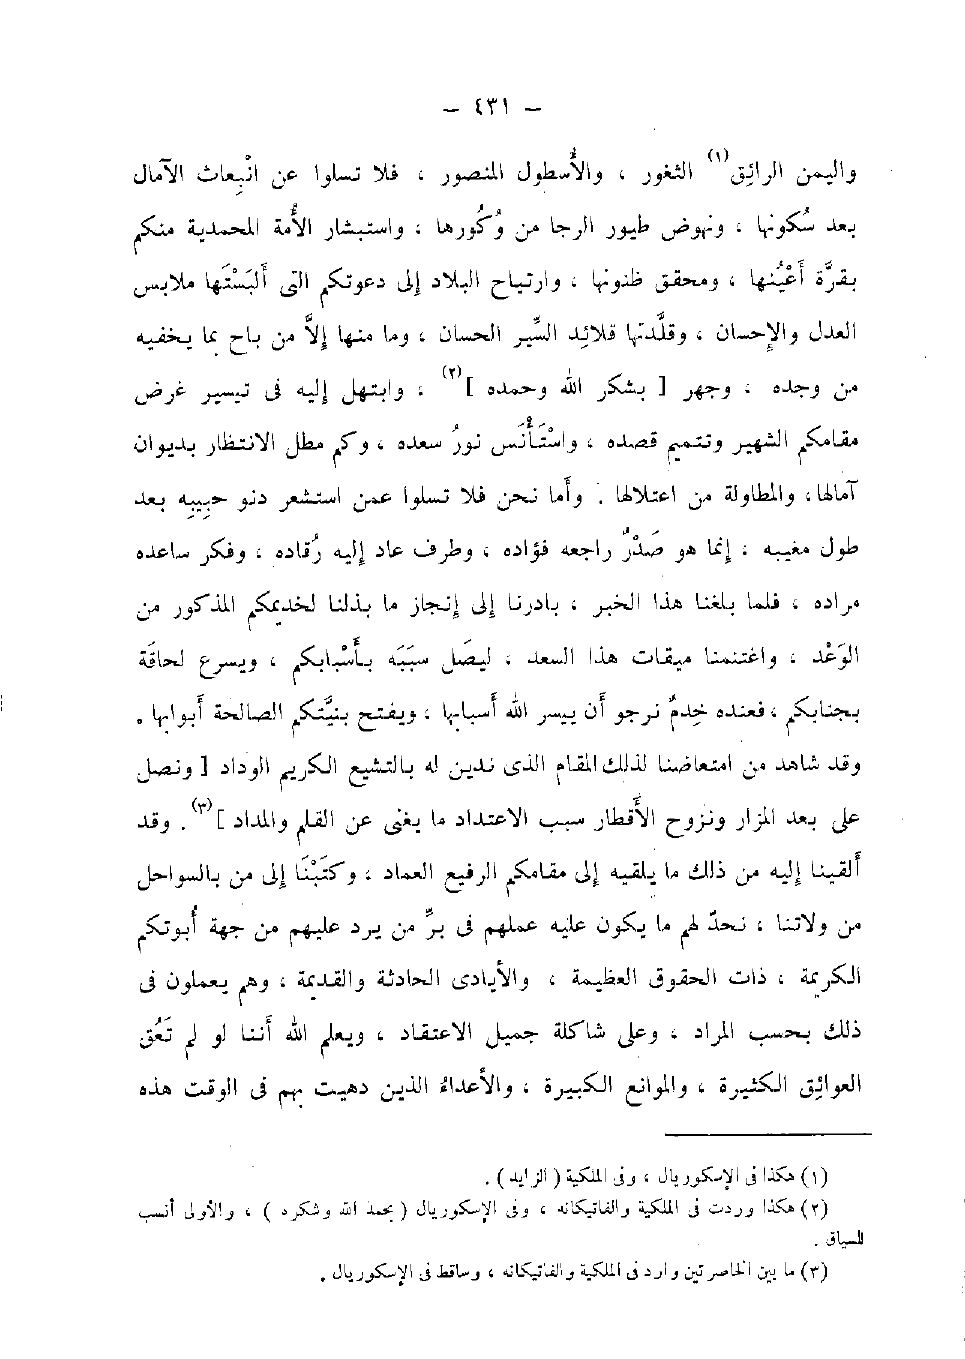 — ٤٣١ —
واليمن الرائِق(١) الثغور ، والأُسطول المنصور ، فلا تسلوا عن انْبِعاث الآمال
بعد سُكونها ، ونهوض طيور الرجا من وُكُورها ، واستبشار الأُمة المحمدية منكم
بقرَّة أَعْيُنها ، ومحقق ظنونها ، وارتياح البلاد إلى دعوتكم التى أَلبَسْتَها ملابس
العدل والإِحسان ، وقلَّدتها قلائِد السِّير الحسان ، وما منها إلاَّ من باح بما يخفيه
من وجده ، وجهر [ بشكر الله وحمده ](٢) ، وابتهل إليه فى تيسير غرض
مقامكم الشهير وتتميم قصده ، واسْتَأْنَس نورُ سعده ، وكم مطل الانتظار بديوان
آمالها، والمطاولة من اعتلالها . وأَما نحن فلا تسلوا عمن استشعر دنو حبِيبِه بعد
طول مغيبه ، إنما هو صَدْرٌ راجعه فؤاده ، وطرف عاد إليه رُقاده ، وفكر ساعده
مراده ، فلما بلغنا هذا الخبر ، بادرنا إلى إنجاز ما بذلنا لخديمكم المذكور من
الوَعْد ، واغتنمنا ميقات هذا السعد ، ليصَل سبَبَه بأَسْبابكم ، ويسرع لحاقَة
بجنابكم ، فعنده خِدمٌ نرجو أَن ييسر الله أَسبابها ، ويفتح بنيَّتكم الصالحة أَبوابها .
وقد شاهد من امتعاضنا لذلك المقام الذى ندين له بالتشيع الكريم الوداد [ ونصل
على بعد المزار ونزوح الأَقطار سبب الاعتداد ما يغنى عن القلم والمداد ](٣) . وقد
أَلقينا إليه من ذلك ما يلقيه إلى مقامكم الرفيع العماد ، وكتَبْنَا إلى من بالسواحل
من ولاتنا ، نحدّ لهم ما يكون عليه عملهم فى برِّ من يرد عليهم من جهة أُبوتكم
الكريمة ، ذات الحقوق العظيمة ، والأَيادى الحادثة والقديمة ، وهم يعملون فى
ذلك بحسب المراد ، وعلى شاكلة جميل الاعتقاد ، ويعلم الله أَننا لو لم تَعُق
العوائِق الكثيرة ، والموانع الكبيرة ، والأَعداءُ الذين دهيت بهم فى الوقت هذه
(١) هكذا فى الإسكوريال ، وفى الملكية ( الزايد ) .
(٢) هكذا وردت فى الملكية والفاتيكانه ، وفى الإسكوريال ( بحمد الله وشكره ) ، والأولى أنسب
للسياق .
(٣) ما بين الخاصرتين وارد فى الملكية والفاتيكانه ، وساقط فى الإسكوريال .